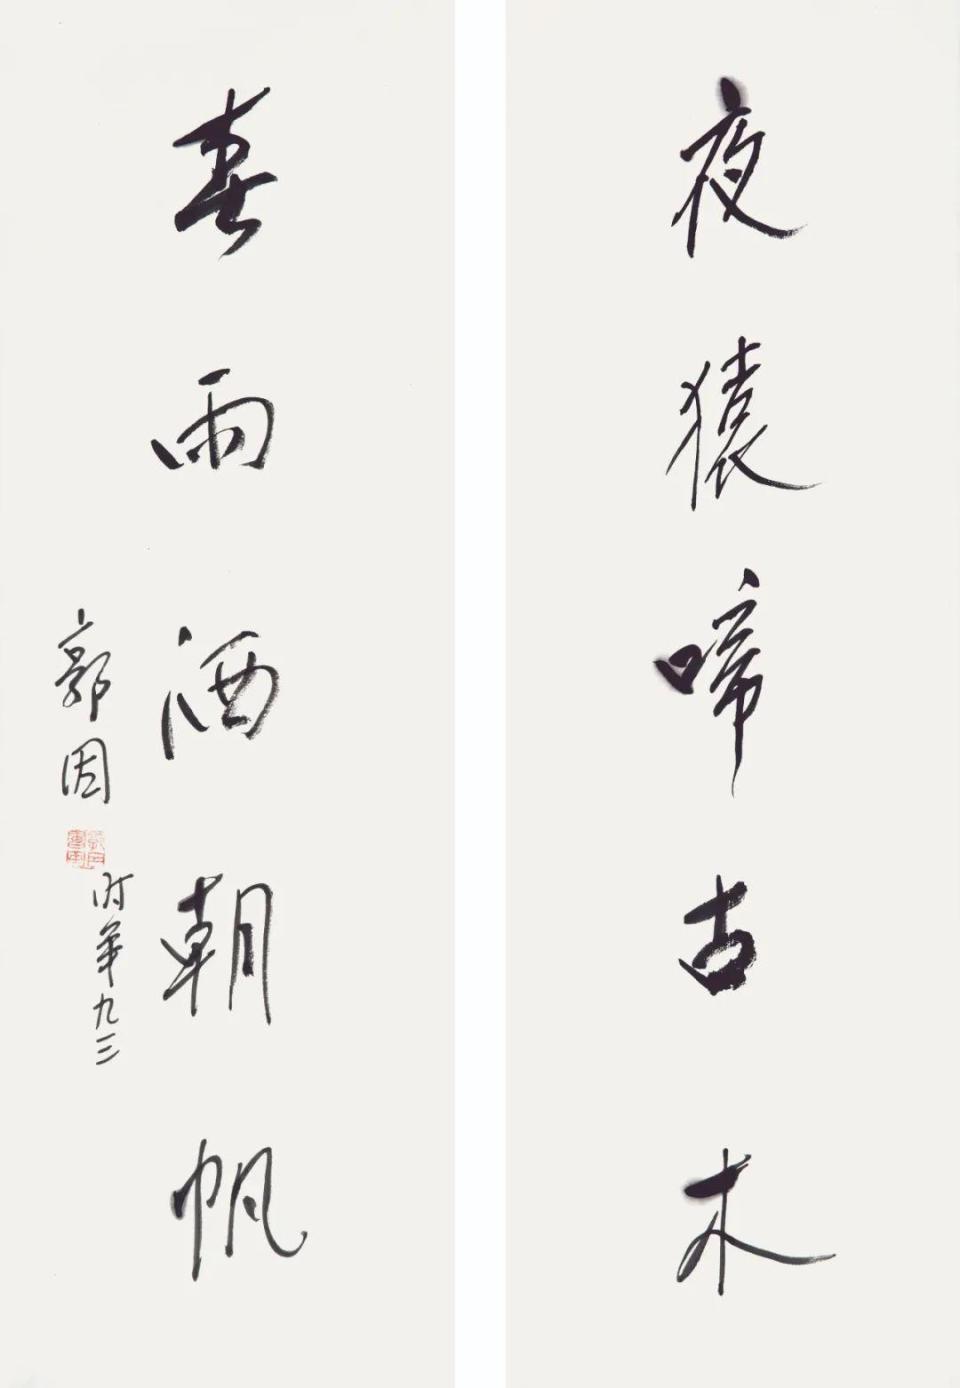 夜猿啼古木
春雨洒朝帆
郭因
时年九三